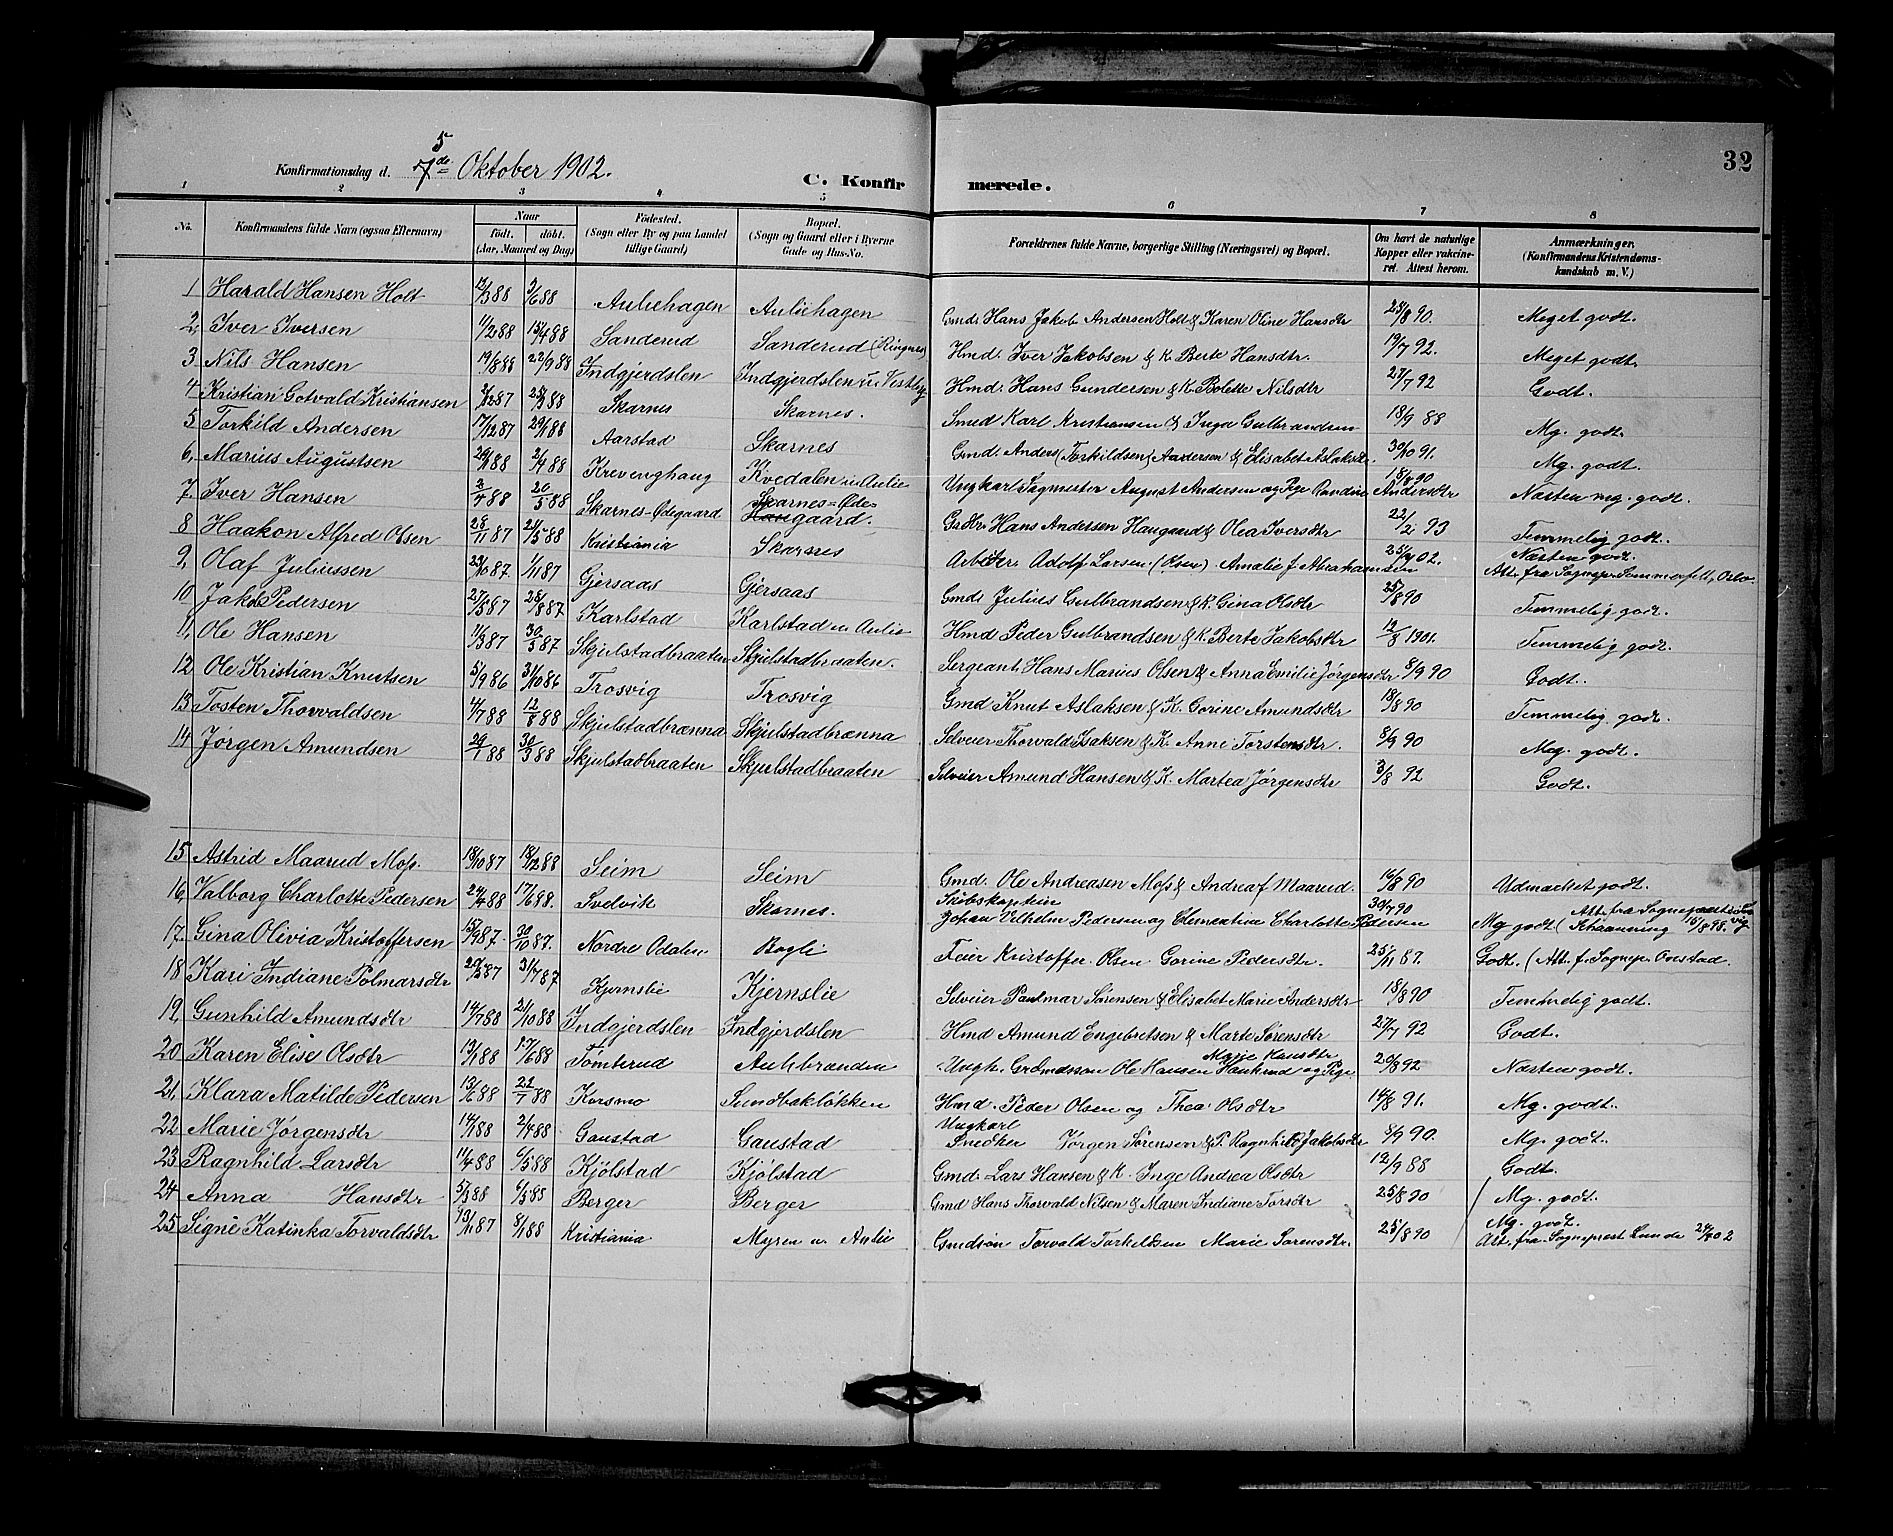 32
Konfirmationsdag d. 7de 5 Oktober 1902.
C. Konfirmerede.
1 2 3 4 5 6 7 8
No. Konfirmandens fulde Navn (ogsaa Efternavn) Naar født. døbt. (Aar, Maaned og Dag) Fødested. (Sogn eller By og paa Landet tillige Gaard) Bopæl. (Sogn og Gaard eller i Byerne Gade og Hus-No. Forældrenes fulde Navne, borgerlige Stilling (Næringsvei) og Bopæl. Om havt de naturlige Kopper eller vakcineret. Attest herom. Anmærkninger. (Konfirmandens Kristendomskundskab m. V.)
1 Harald Hansen Holt 12/3 88 3/6 88 Auliehagen Auliehagen Gmd. Hans Jakob Andersen Holt & Karen Oline Hansdtr 25/8 90. Meget godt.
2, Iver Iversen 11/2 88 15/4 88 Sanderud Sanderud (Ringnes) Hmd. Iver Jakobsen & K. Berte Hansdtr. 19/7 92. Meget godt.
3 Nils Hansen 19/8 88 22/9 88 Indgjerdslen Indgjerdslen u. Vestby Hmd. Hans Gundersen & K. Bolette Nilsdtr 27/7 92 Godt.
4 Kristian Gotvald Kristiansen Skarnes Skarnes. Smed Karl Kristiansen & Inga Gulbrandsen 18/9 88 Mg. godt.
5 Torkild Andersen 17/12 87 29/1 88 Aarstad Skarnes Gmd. Anders (Torkildsen) Andersen & Elisabet Aslaksdtr. 30/10 91. Mg. godt.
6, Marius Augustsen 29/1 88 2/4 88 Krevenghaug Kvedalen u. Aulie Ungkarl Sagmester August Andersen og Pige Randine Andersdtr 18/8 90 Næsten mg. godt.
7. Iver Hansen 2/4 88 20/5 88 Skarnes-Ødegaard Skarnes-Ødegaard. Gsdbr. Hans Andersen Haugaard & Olea Iversdtr 22/2 93 Temmelig godt.
8 Haakon Alfred Olsen 28/11 87 21/5 88 Kristiania Skarnes Arbeider Adolf Larsen (Olsen) Amalie f. Abrahamsen 25/7 02. Næsten godt. Att. fra Sognepr. Sommerfelt, Oslo.
9, Olaf Juliussen 23/10 87. 1/11 87 Gjersaas Gjersaas Gmd. Julius Gulbrandsen & K. Gina Olsdtr 25/8 90 Temmelig godt.
10 Jakob Pedersen 27/5 87 28/8 87 Karlstad Karlstad u Aulie Hmd Peder Gulbrandsen & K. Berte Jakobsdtr 12/8 1901. Temmelig godt.
11, Ole Hansen 11/3 87 30/5 87 Skjulstadbraaten Skjulstadbraaten. Sergeant. Hans Marius Olsen & Anna Emilie Jørgensdtr 8/9 90 Godt.
12 Ole Kristian Knutsen 5/9 86 31/10 86 Trosvig Trosvig Gmd Knut Aslaksen & K. Gorine Amundsdtr 18/8 90 Temmelig godt.
13. Tosten Thorvaldsen 4/7 88 12/8 88 Skjulstadbrænna Skjulstadbrænna Selveier Thorvald Isaksen & K. Anne Torstensdtr. 8/9 90 Meg. godt.
14 Jørgen Amundsen 29/1 88 30/3 88 Skjulstadbraaten Skjulstadbraaten Selveier Amund Hansen & K. Martea Jørgensdtr 3/8 92 Godt.
15 Astrid Maarud Moss. 18/10 87 18/12 88 Seim Seim Gmd. Ole Andreasen Moss & Andrea f. Maarud. 16/8 90 Udmærket godt.
16, Valborg Charlotte Pedersen 24/4 88 17/6 88. Svelvik Skarnes. Skibskaptein Johan Vilhelm Pedersen og Clementine Charlotte Pedersen 30/7 90 Mg godt (Att. fra Sogneprest Schaanning
17. Gina Olivia Kristoffersen 15/9 87. 30/10 87. Nordre Odalen Bogli Feier Kristoffer Olsen Gorine Pedersdtr. 25/11 87. Godt. (Att. f. Sognepr. Onstad.
18 Kari Indiane Polmarsdtr 31/7 87 Kjernslie Kjernslie Selveier Paulmar Sørensen & Elisabet Marie Andersdtr 18/8 90 Temmelig godt.
19, Gunhild Amundsdtr 14/7 88 21/10 88 Indgjerdslen Indgjerdslen Hmd Amund Engebretsen & Marte Sørensdtr 27/7 92 Godt.
20 Karen Elise Olsdtr 19/1 88 17/6 88 Tomterud Auliebranden Ungk. Grdmdssøn Ole Hansen Haukrud og Pige Marie Hansdtr 20/8 92 Næsten godt.
21, Klara Matilde Pedersen 13/6 88 22/7 88 Korsmo Sundbakløkken Hmd. Peder Olsen og Thea Olsdtr 14/8 91. Mg. godt.
22 Marie Jørgensdtr 14/1 88 2/4 88 Gaustad Gaustad Ungkarl Snedker Jørgen Sørensen & P. Ragnhild Jakobsdtr 8/9 90. Mg. godt.
23 Ragnhild Larsdtr 11/4 88 6/5 88 Kjølstad Kjølstad Gmd. Lars Hansen & K. Inge Andrea Olsdtr 12/9 88 Godt.
24 Anna Hansdtr 5/3 88 6/5 88 Berger Berger Gmd Hans Thorvald Nilsen & Maren Indiane Torsdtr 25/8 90 Mg. godt.
25 Signe Katinka Torvaldsdtr 13/11 87 8/1 88 Kristiania Myren u. Aulie Gmdsøn Torvald Torkildsen Marie Sørensdtr. 25/8 90 Mg. godt. Att. fra Sogneprest Lunde